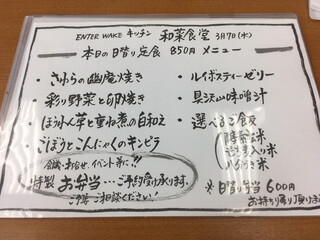 ENTER WAKE キッチン 和菜食堂 3月7日(水)
本日の日替り定食 850円 メニュー
・さわらの幽庵焼き
・彩り野菜と卵焼き
・ほうれん草と重ね煮の白和え
・ごぼうとこんにゃくのキンピラ
・ルイボスティーゼリー
・具沢山味噌汁
・選べるご飯
酵素玄米
もちきび入り米
会議・お花見、イベント等に!!
特製 お弁当…ご予約受け承ります。
ご予算ご相談ください!
※日替り弁当 600円
お持ち帰り頂けます